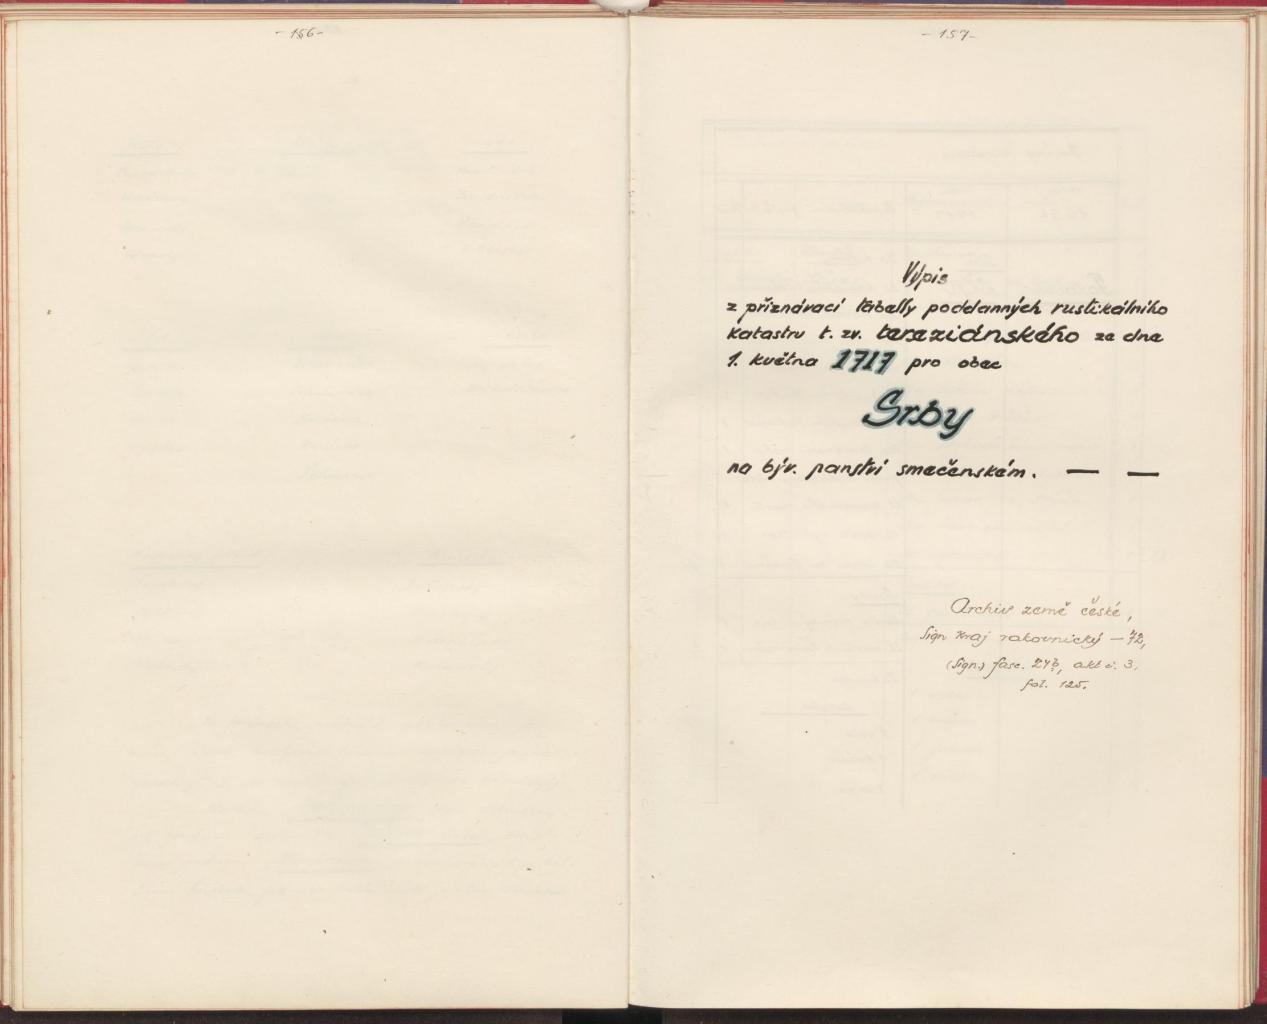 - 156 -
- 157 -
Výpis
z přiznávací tabelly poddanných rustikálního
katastru t. zv. tereziánského ze dne
1. května 1717 pro obec
Srby
na býv. panství smečenském. — —
Archiv země české,
sign kraj rakovnický – 72,
(sign.) fasc. 27b, akt č. 3.
fol. 125.